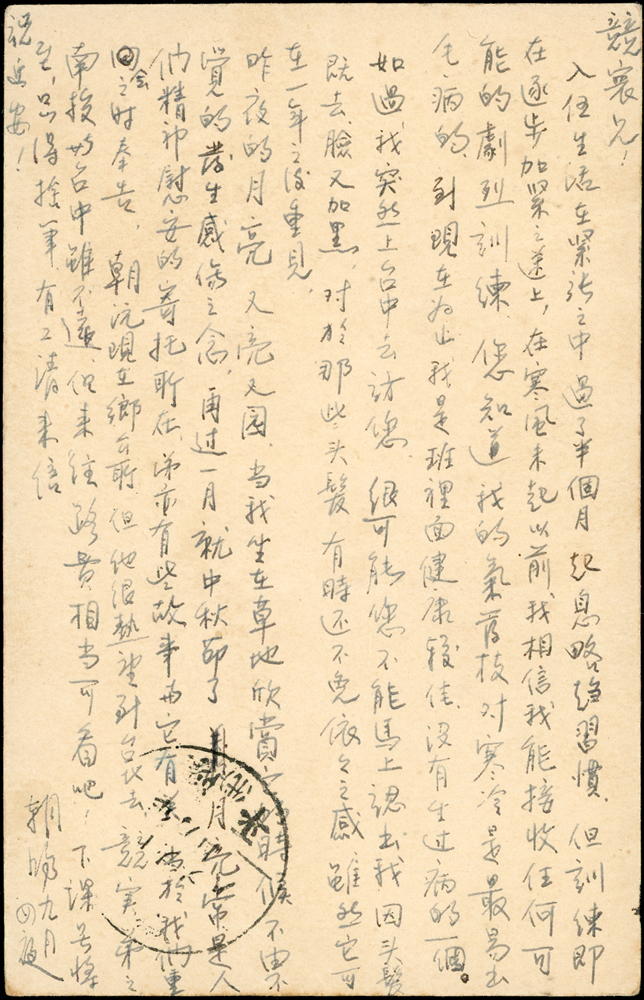 競寰兄！
入伍生活在緊張之中過了半個月 起息略為習慣，但訓練即
在逐步加緊之途上，在寒風未起以前我相信我能接收任何可
能的劇烈訓練 您知道我的氣管枝对寒冷是最易出
毛病的，到現在为止我是班裡面健康較佳，沒有生过病的一個。
如過，我突然上台中去訪您 很可能您不能馬上認出我 因头髮
既去，臉又加黑，对於那些头髮 有時还不免依々之感 雖然它可
在一年之後重見，
昨夜的月亮 又亮又圆，当我坐在草地欣賞 時候 不由不
覺的發生感傷之念，再过一月就中秋節了 月 月亮常是人
們精神慰安的寄托所在，弟亦有些故事与它有 於我們重
会之时奉告， 朝沅現在鄉公所，但他很熱望到台北去，競実弟之
南投与台中雖不遠 但來往路費相当可看吧！下課
至，只得捨筆 有工請来信
祝近安！
朝 九月
四夜